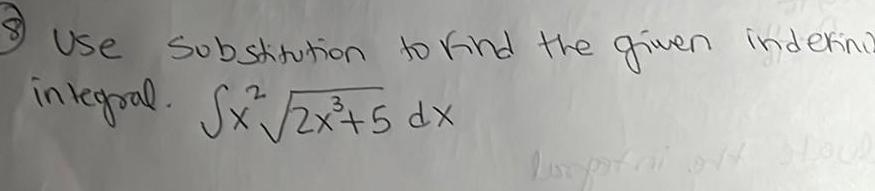 8 Use substitution to find the given indefini
integral. ∫x²√(2x³+5) dx